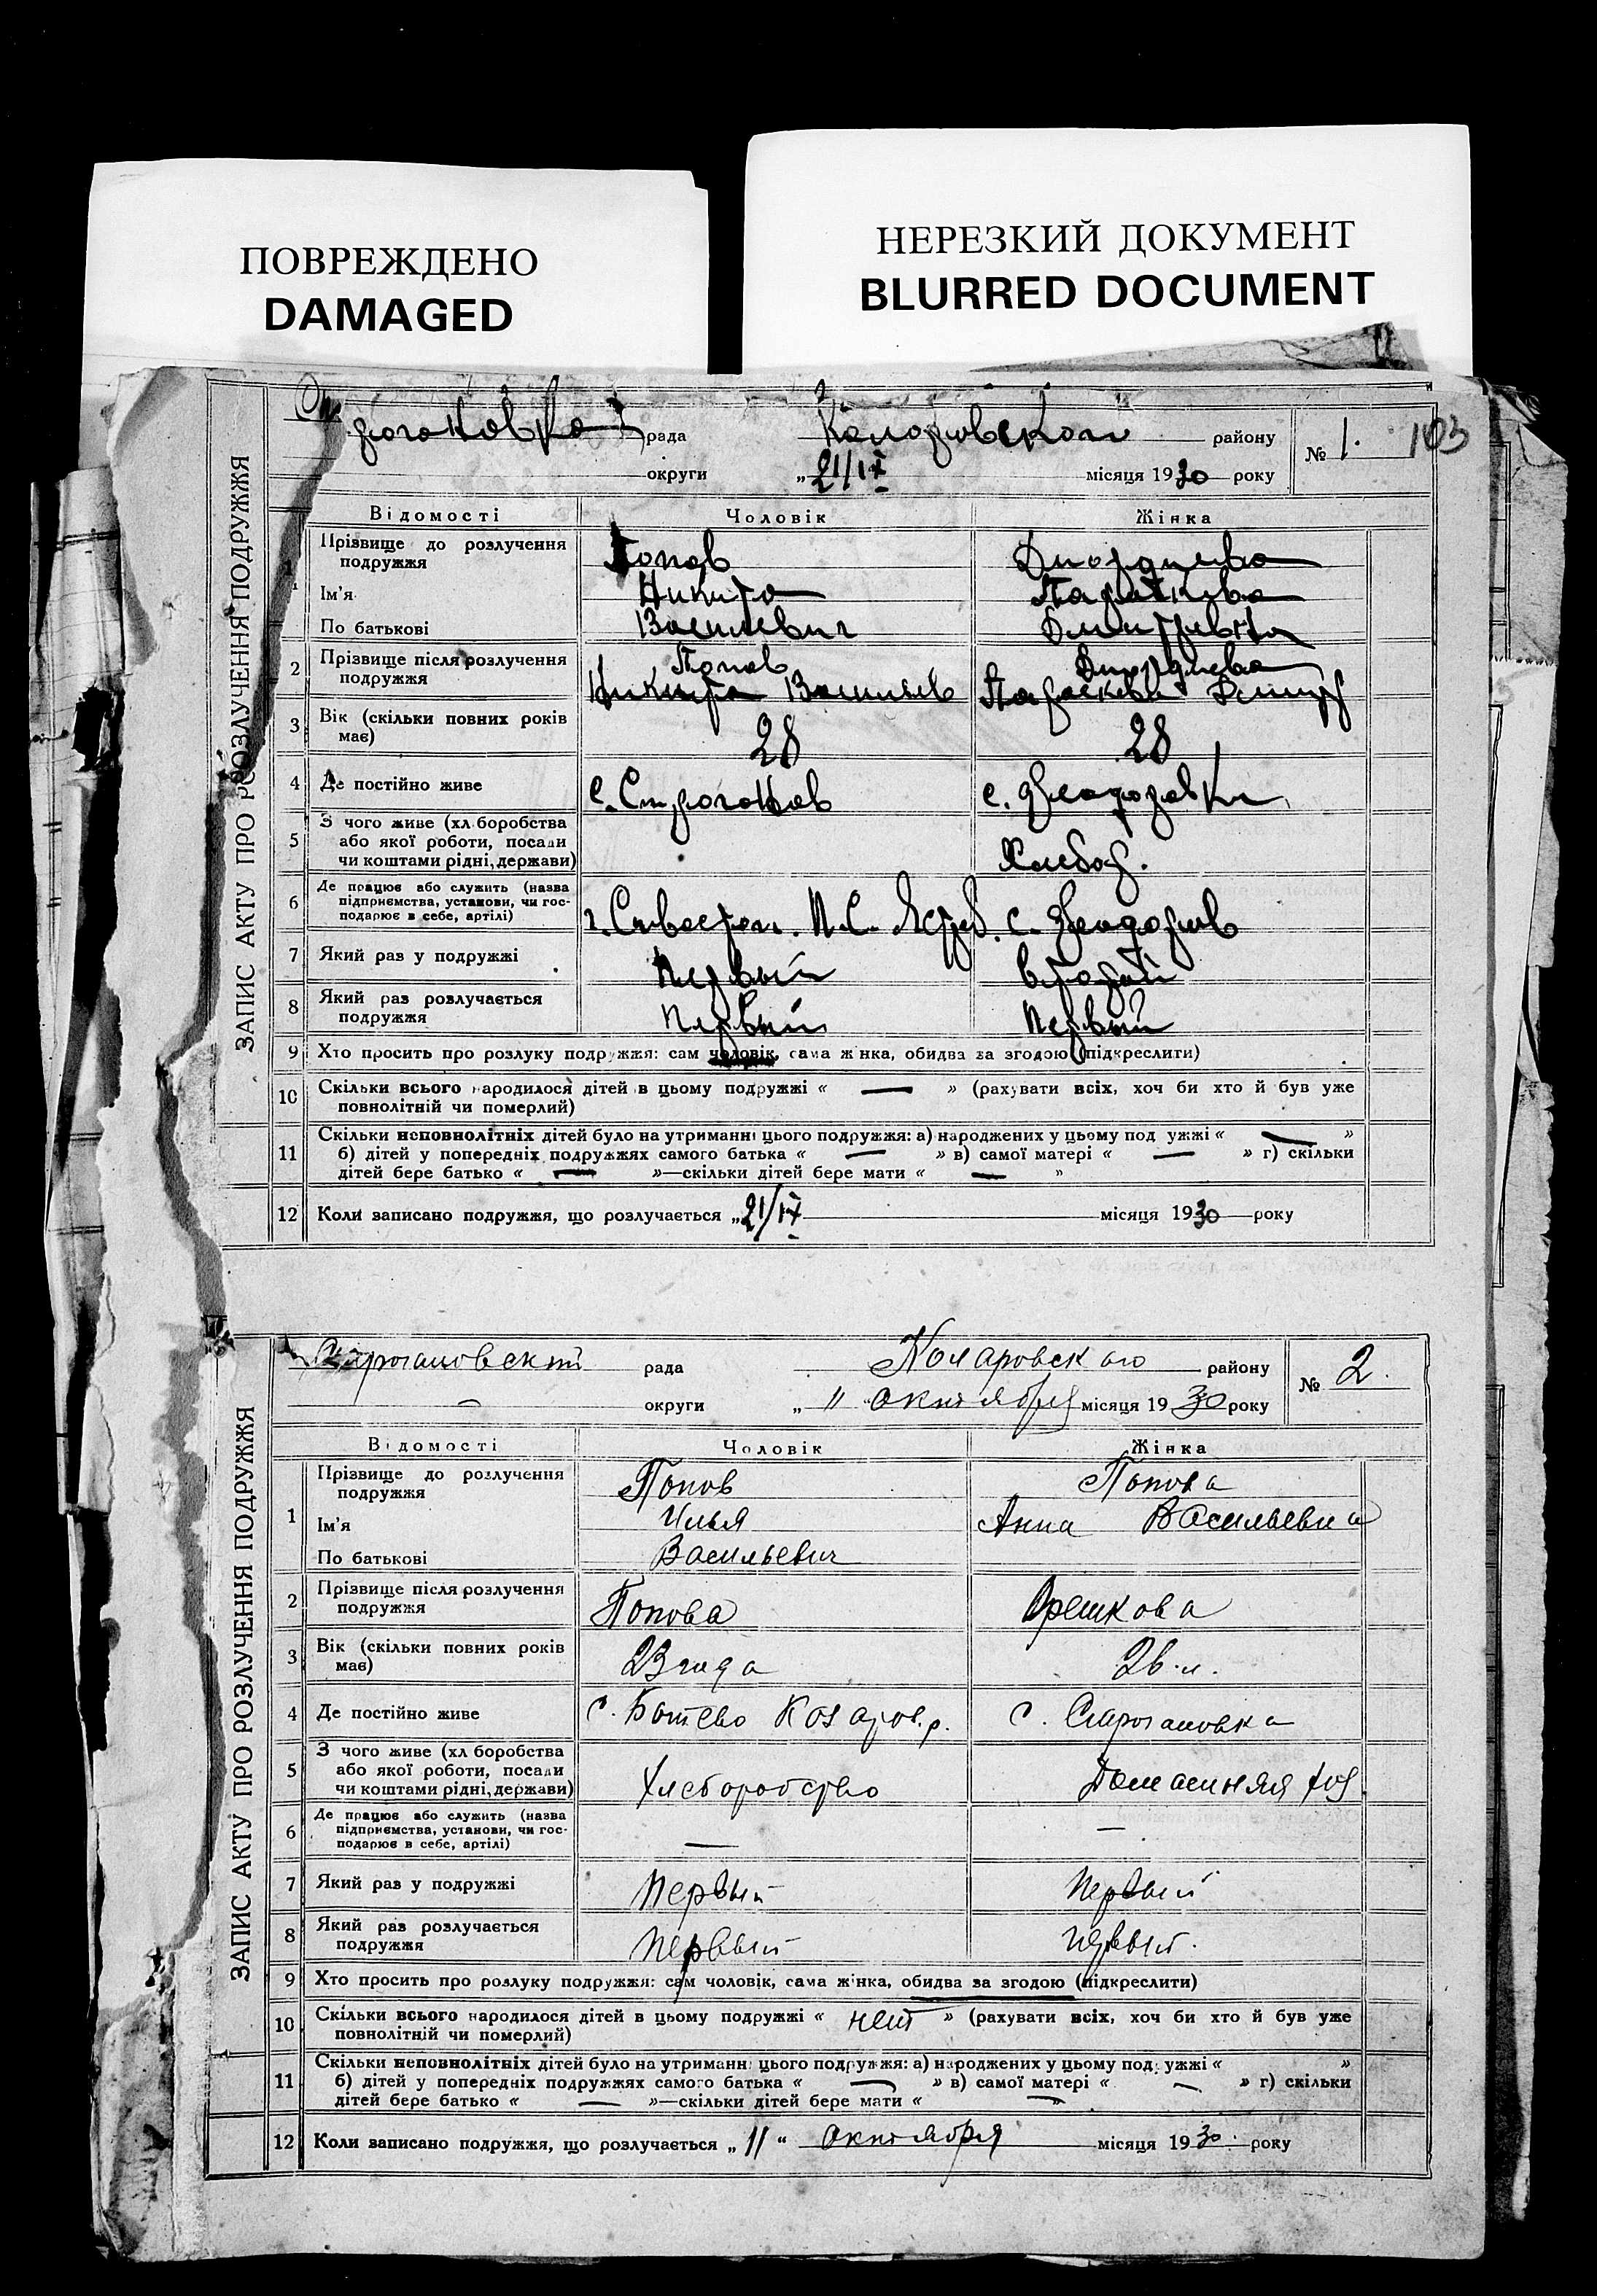 ПОВРЕЖДЕНО
DAMAGED
НЕРЕЗКИЙ ДОКУМЕНТ
BLURRED DOCUMENT
ЗАПИС АКТУ ПРО РОЗЛУЧЕННЯ ПОДРУЖЖЯ
рада району № 1. 103
округи „21/IX місяця 1930 року
Відомості Чоловік Жінка
1 Прізвище до розлучення Попов
подружжя
Ім'я Никита
По батькові Василевич
2 Прізвище після розлучення Попов
подружжя Никита
3 Вік (скільки повних років 28 28
має)
4 Де постійно живе с.
5 З чого живе (хл боробства
або якої роботи, посади
чи коштами рідні, держави) Хлебор.
6 Де працює або служить (назва
підприємства, установи, чи гос-
подарює в себе, артілі)
7 Який раз у подружжі Первый второй
8 Який раз розлучається Первый Первый
подружжя
9 Хто просить про розлуку подружжя: сам чоловік, сама жінка, обидва за згодою (підкреслити)
10 Скільки всього народилося дітей в цьому подружжі « — » (рахувати всіх, хоч би хто й був уже
повнолітній чи померлий)
11 Скільки неповнолітніх дітей було на утриманні цього подружжя: а) народжених у цьому подружжі « — »
б) дітей у попередніх подружжях самого батька « — » в) самої матері « — » г) скільки
дітей бере батько « — »—скільки дітей бере мати « — »
12 Коли записано подружжя, що розлучається „21/IX місяця 1930 року
ЗАПИС АКТУ ПРО РОЗЛУЧЕННЯ ПОДРУЖЖЯ
рада Коларовского району № 2.
— округи „11" октября місяця 1930 року
Відомості Чоловік Жінка
1 Прізвище до розлучення Попов Попова
подружжя
Ім'я Илья Анна Васильевна
По батькові Васильевич
2 Прізвище після розлучення Попова Орешкова
подружжя
3 Вік (скільки повних років 23 года 26 л.
має)
4 Де постійно живе с. Ботево Коларов.р. с. Строгановка
5 З чого живе (хл боробства
або якої роботи, посади
чи коштами рідні, держави) Хлеборобство Домашняя хоз.
6 Де працює або служить (назва
підприємства, установи, чи гос- — —
подарює в себе, артілі)
7 Який раз у подружжі Первый Первый
8 Який раз розлучається Первый первый.
подружжя
9 Хто просить про розлуку подружжя: сам чоловік, сама жінка, обидва за згодою (підкреслити)
10 Скільки всього народилося дітей в цьому подружжі « нет » (рахувати всіх, хоч би хто й був уже
повнолітній чи померлий)
11 Скільки неповнолітніх дітей було на утриманні цього подружжя: а) народжених у цьому подружжі « »
б) дітей у попередніх подружжях самого батька « — » в) самої матері « — » г) скільки
дітей бере батько « — »—скільки дітей бере мати « — »
12 Коли записано подружжя, що розлучається „11" октября місяця 1930. року